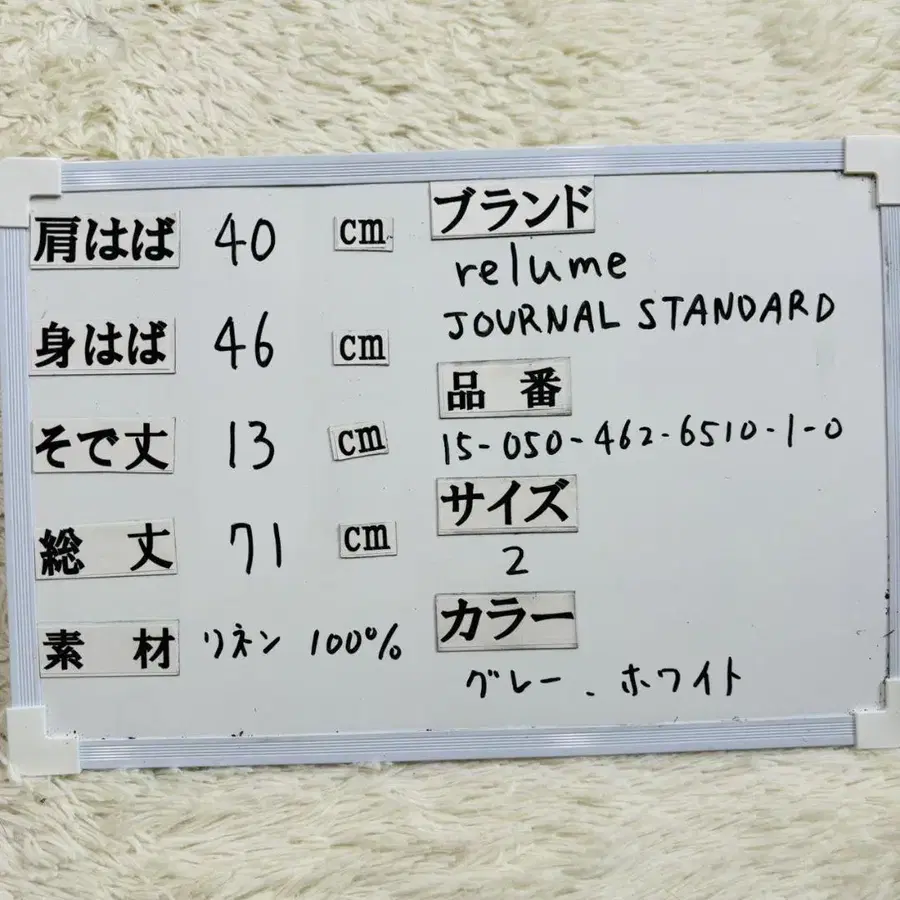 肩はば 40 cm
身はば 46 cm
そで丈 13 cm
総丈 71 cm
素材 リネン 100%
ブランド
relume
JOURNAL STANDARD
品番
15-050-462-6510-1-0
サイズ
2
カラー
グレー、ホワイト